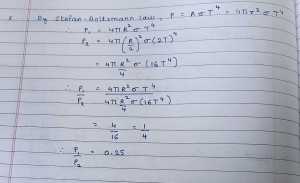 By Stefan-Boltzmann law, P = AσT⁴ = 4πr²σT⁴
∴ P₁ = 4πR²σT⁴
P₂ = 4π(R/2)²σ(2T)⁴
= 4πR²/4 σ(16T⁴)
∴ P₁/P₂ = 4πR²σT⁴ / 4πR²/4 σ(16T⁴)
= 4/16 = 1/4
∴ P₁/P₂ = 0.25